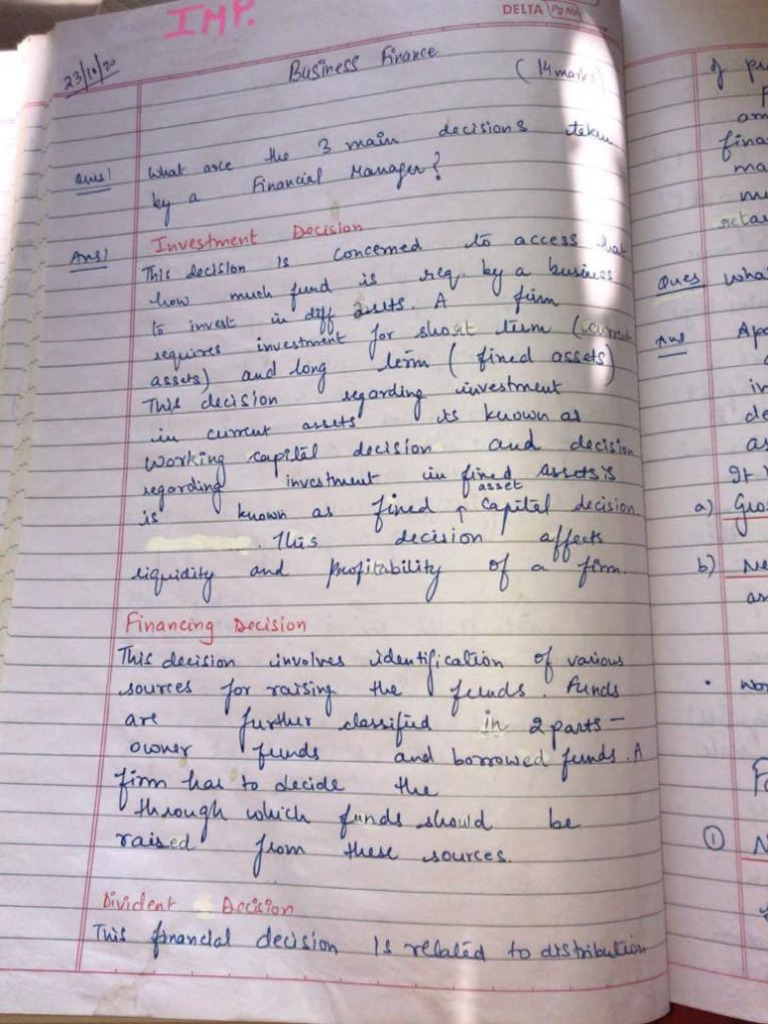 IMP.
DELTA
23/10/20
Business Finance
(14 marks)
Ques1 What are the 3 main decisions taken
by a Financial Manager?
Ans1 Investment Decision
This decision is concerned to access that
how much fund is req. by a business
to invest in diff assets. A firm
requires investment for short term (current
assets) and long term (fined assets)
This decision regarding investment
in current assets is known as
working capital decision and decision
regarding investment in fined assets is
is known as fined asset capital decision.
. This decision affects
liquidity and profitability of a firm.
Financing Decision
This decision involves identification of various
sources for raising the funds. Funds
are further classified in 2 parts -
owner funds and borrowed funds. A
firm has to decide the
through which funds should be
raised from these sources.
Divident Decision
This financial decision is related to distribution
of
am
fina
ma
retai
Ques wha
Ans Apa
in
de
as
It
a) Gro
b) Ne
as
• wor
① N